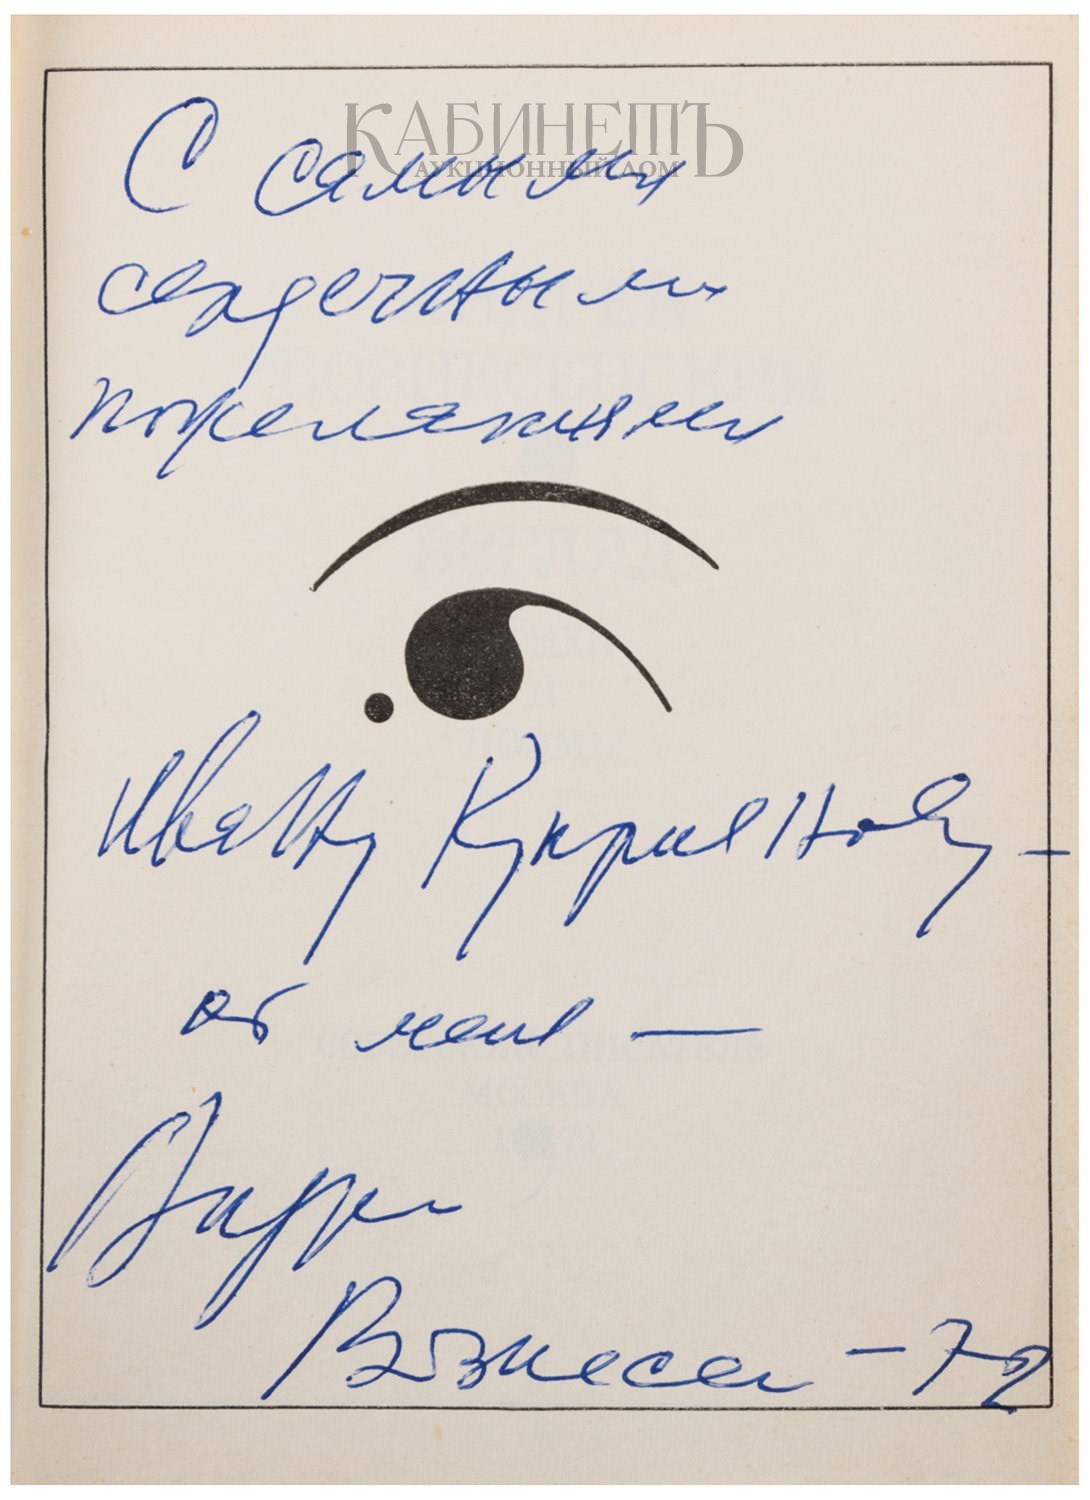 КАБИНЕТЪ
АУКЦИОННЫЙ ДОМ
С самыми
сердечными
пожеланиями
Ивану Куприянову –
от меня —
Андрей
Вознесен – 72